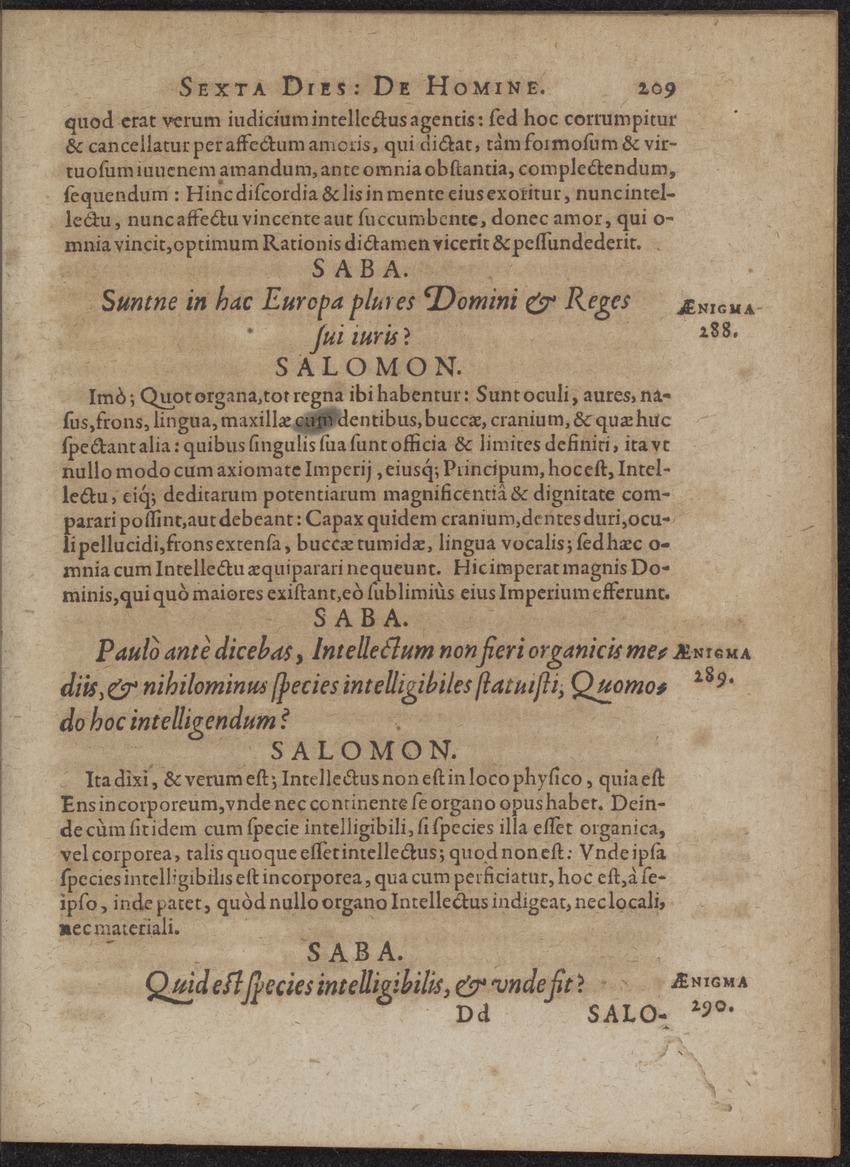 SEXTA DIES: DE HOMINE. 209
quod erat verum iudicium intellectus agentis: ſed hoc corrumpitur
& cancellatur per affectum amoris, qui dictat, tàm formoſum & vir-
tuoſum iuuenem amandum, ante omnia obſtantia, complectendum,
ſequendum: Hinc diſcordia & lis in mente eius exoritur, nunc intel-
lectu, nunc affectu vincente aut ſuccumbente, donec amor, qui o-
mnia vincit, optimum Rationis dictamen vicerit & peſſundederit.
SABA.
Suntne in hac Europa plures Domini & Reges
ſui iuris?
ÆNIGMA
288.
SALOMON.
Imò; Quot organa, tot regna ibi habentur: Sunt oculi, aures, na-
ſus, frons, lingua, maxillæ cum dentibus, buccæ, cranium, & quæ huc
ſpectant alia: quibus ſingulis ſua ſunt officia & limites definiti, ita vt
nullo modo cum axiomate Imperij, eiusq́; Principum, hoc eſt, Intel-
lectu, eiq́; deditarum potentiarum magnificentiâ & dignitate com-
parari poſſint, aut debeant: Capax quidem cranium, dentes duri, ocu-
li pellucidi, frons extenſa, buccæ tumidæ, lingua vocalis; ſed hæc o-
mnia cum Intellectu æquiparari nequeunt. Hic imperat magnis Do-
minis, qui quò maiores exiſtant, eò ſublimiùs eius Imperium efferunt.
SABA.
Paulò antè dicebas, Intellectum non fieri organicis me-
diis, & nihilominus ſpecies intelligibiles ſtatuiſti; Quomo-
do hoc intelligendum?
ÆNIGMA
289.
SALOMON.
Ita dixi, & verum eſt; Intellectus non eſt in loco phyſico, quia eſt
Ens incorporeum, vnde nec continente ſe organo opus habet. Dein-
de cùm ſit idem cum ſpecie intelligibili, ſi ſpecies illa eſſet organica,
vel corporea, talis quoque eſſet intellectus; quod non eſt: Vnde ipſa
ſpecies intelligibilis eſt incorporea, qua cum perficiatur, hoc eſt, à ſe-
ipſo, inde patet, quòd nullo organo Intellectus indigeat, nec locali,
nec materiali.
SABA.
Quid eſt ſpecies intelligibilis, & vnde fit?
ÆNIGMA
290.
Dd SALO-